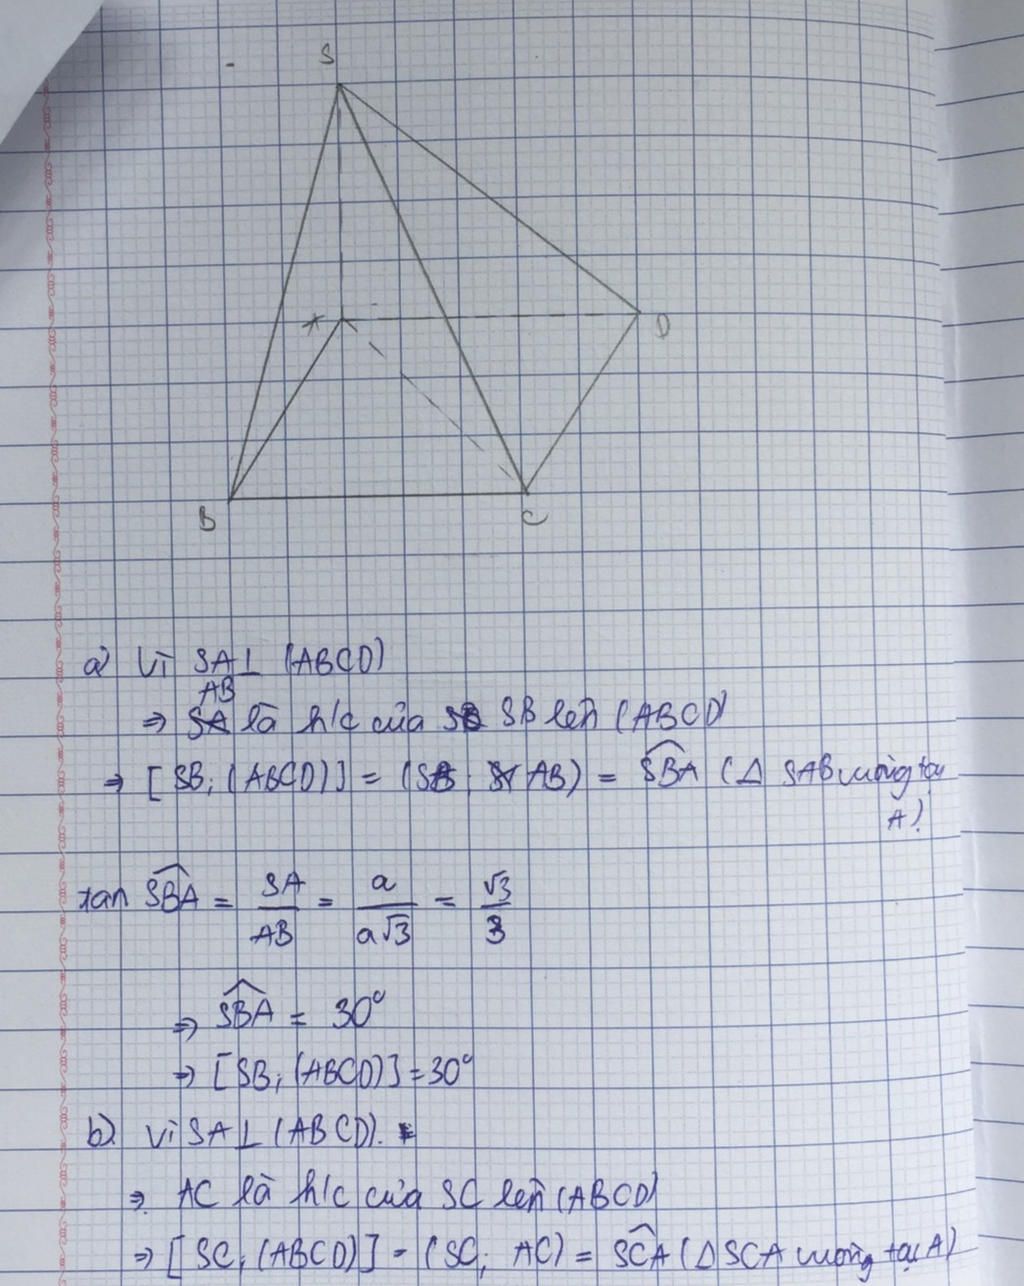 S
A
D
B
C
a) Vì SA ⊥ (ABCD)
AB
⇒ là h/c của SB lên (ABCD)
⇒ [SB; (ABCD)] = (SB; AB) = \widehat{SBA} (Δ SAB vuông tại
A)
tan \widehat{SBA} = SA/AB = a/a√3 = √3/3
⇒ \widehat{SBA} = 30°
⇒ [SB; (ABCD)] = 30°
b) Vì SA ⊥ (ABCD).
⇒ AC là h/c của SC lên (ABCD)
⇒ [SC; (ABCD)] = (SC; AC) = \widehat{SCA} (Δ SCA vuông tại A)